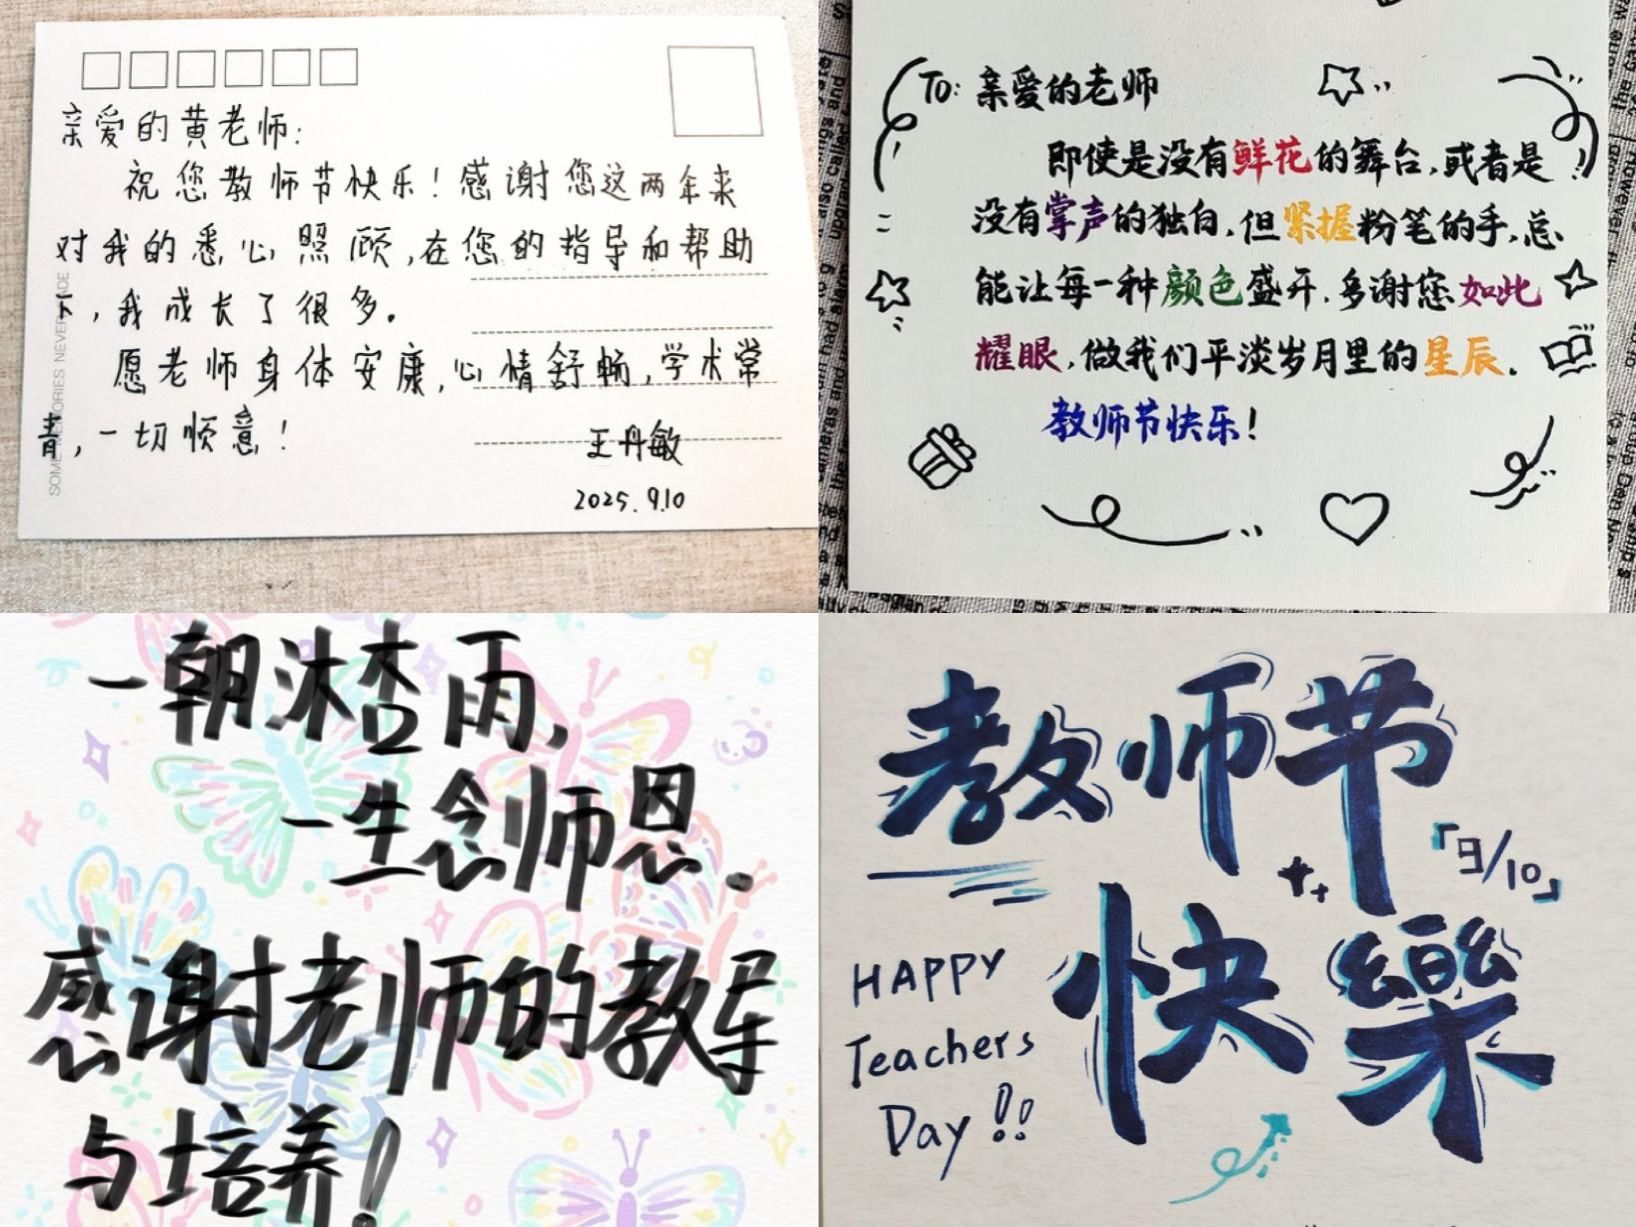 亲爱的黄老师:
祝您教师节快乐!感谢您这两年来
对我的悉心照顾,在您的指导和帮助
下,我成长了很多。
愿老师身体安康,心情舒畅,学术常
青,一切顺意!
王丹敏
2025.9.10
SOME MEMORIES NEVER FADE
To: 亲爱的老师
即使是没有鲜花的舞台,或者是
没有掌声的独白,但紧握粉笔的手,总
能让每一种颜色盛开.多谢您如此
耀眼,做我们平淡岁月里的星辰.
教师节快乐!
一朝沐杏雨,
一生念师恩.
感谢老师的教导
与培养!
教师节
「9/10」
快樂
HAPPY
Teachers
Day!!